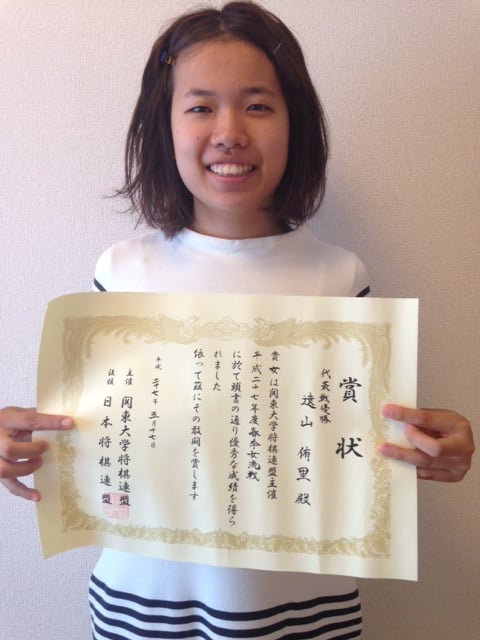 賞状
代表戦優勝
遠山 侑里 殿
貴女は関東大学将棋連盟主催
平成二十七年度春季女流戦
に於て頭書の通り優秀な成績を得ら
れました
依って茲にその敢闘を賞します
平成 二十七年 五月十七日
主催 関東大学将棋連盟
後援 日本将棋連盟